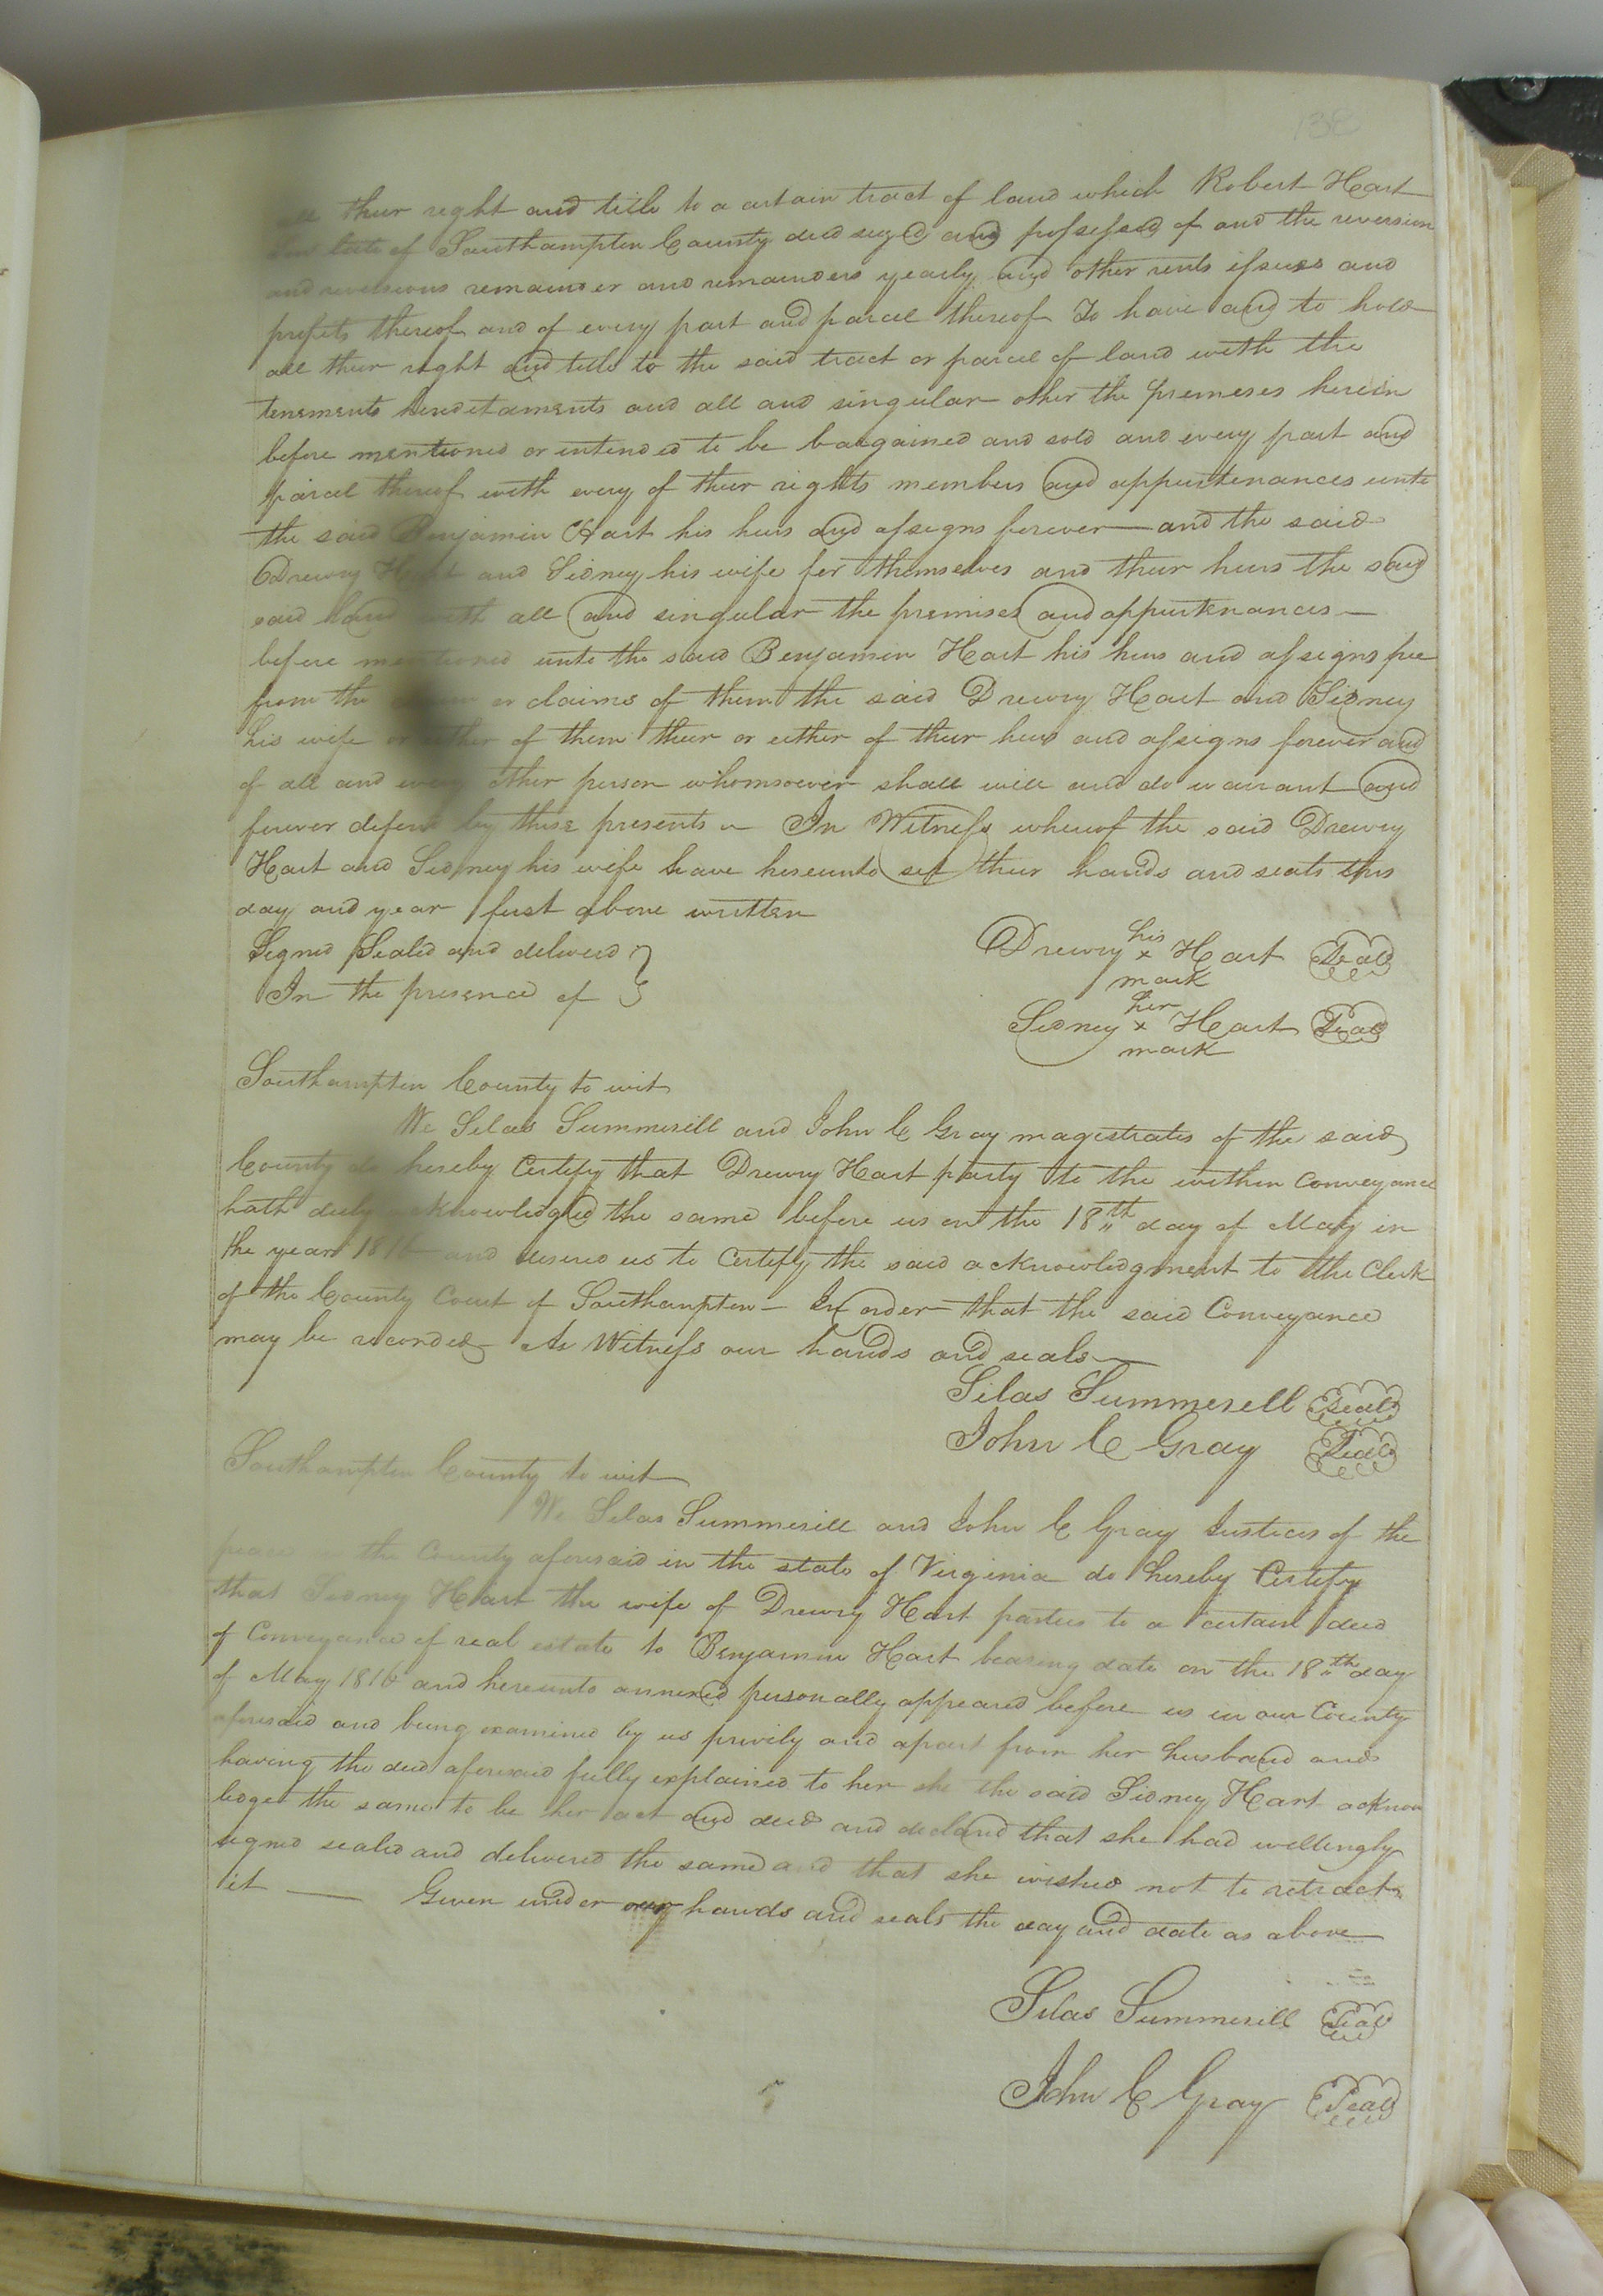 138
all their right and title to a certain tract of land which Robert Hart
late of Southampton County decd seized and possessed of and the reversion
and reversions remainder and remainders yearly and other rents issues and
profits thereof and of every part and parcel thereof To have and to hold
all their right and title to the said tract or parcel of land with the
tenements hereditaments and all and singular other the premeses herein
before mentioned or intended to be bargained and sold and every part and
parcel thereof with every of their rights members and appurtenances unto
the said Benjamin Hart his heirs and assigns forever — and the said
Drewry Hart and Sidney his wife for themselves and their heirs the said
said land with all and singular the premises and appurtenances —
before mentioned unto the said Benjamin Hart his heirs and assigns free
from the or claims of them the said Drewry Hart and Sidney
his wife or either of them their or either of their heirs and assigns forever and
of all and every other person whomsoever shall will and do warrant and
forever defend by these presents — In Witness whereof the said Drewry
Hart and Sidney his wife have hereunto set their hands and seals this
day and year first above written
Signed Sealed and delivered }
In the presence of }
Drewry his x mark Hart Seal
Sidney her x mark Hart Seal
Southampton County to wit
We Silas Summerill and John C Gray magistrates of the said
County do hereby Certify that Drewry Hart party to the within Conveyance
hath duly acknowledged the same before us on the 18th day of May in
the year 1816 and desired us to Certify the said acknowledgment to the Clerk
of the County Court of Southampton — In order that the said Conveyance
may be recorded As Witness our hands and seals —
Silas Summerell Seal
John C Gray Seal
Southampton County to wit
We Silas Summerill and John C Gray Justices of the
peace in the County aforesaid in the state of Virginia do hereby Certify
that Sidney Hart the wife of Drewry Hart parties to a certain deed
of Conveyance of real estate to Benjamin Hart bearing date on the 18th day
of May 1816 and hereunto annexed personally appeared before us in our County
aforesaid and being examined by us privily and apart from her husband and
having the deed aforesaid fully explained to her she the said Sidney Hart acknow
ledged the same to be her act and deed and declared that she had willingly
signed sealed and delivered the same and that she wished not to retract
it — Given under our hands and seals the day and date as above
Silas Summerill Seal
John C Gray Seal